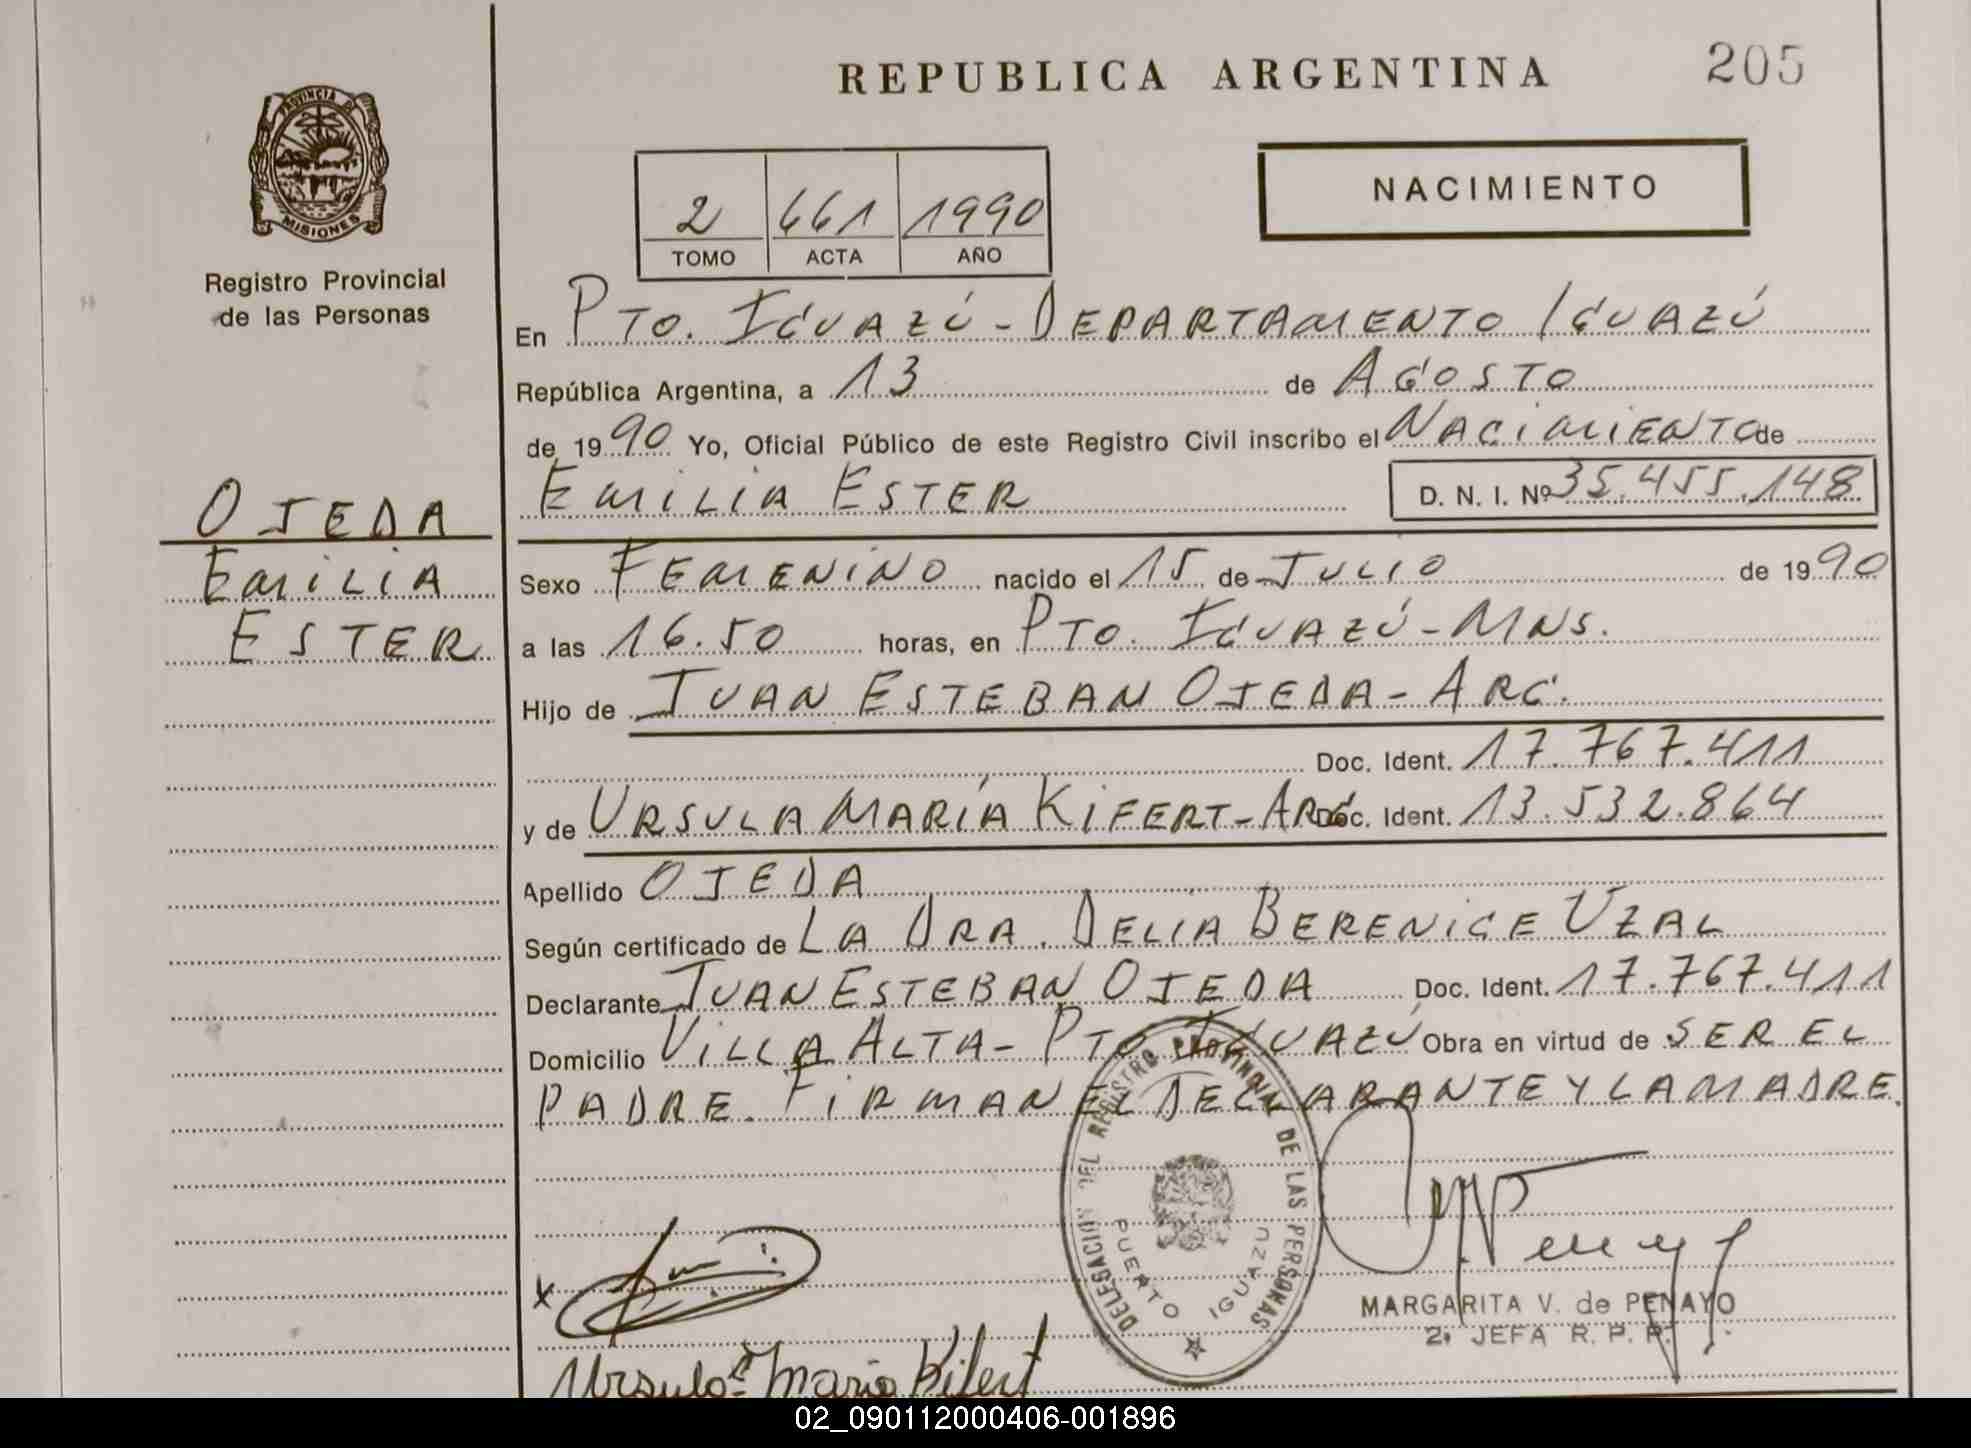 REPUBLICA ARGENTINA
205
PROVINCIA DE
MISIONES
Registro Provincial
de las Personas
NACIMIENTO
2 661 1990
TOMO ACTA AÑO
En PTO. IGUAZÚ - DEPARTAMENTO IGUAZÚ
República Argentina, a 13 de AGOSTO
de 1990 Yo, Oficial Público de este Registro Civil inscribo el NACIMIENTO de
EMILIA ESTER D. N. I. Nº 35.455.148
OJEDA
EMILIA
ESTER
Sexo FEMENINO nacido el 15 de JULIO de 1990
a las 16.50 horas, en PTO. IGUAZÚ - MNS.
Hijo de JUAN ESTEBAN OJEDA - ARG.
Doc. Ident. 17.767.411
y de URSULA MARÍA KIFERT - ARG. Doc. Ident. 13.532.864
Apellido OJEDA
Según certificado de LA DRA. DELIA BERENICE UZAL
Declarante JUAN ESTEBAN OJEDA Doc. Ident. 17.767.411
Domicilio VILLA ALTA - PTO IGUAZÚ Obra en virtud de SER EL
PADRE. FIRMAN EL DECLARANTE Y LA MADRE.
DELEGACION DEL REGISTRO PROVINCIAL DE LAS PERSONAS
PUERTO IGUAZU
x
MARGARITA V. de PENAYO
2ª JEFA R. P. P.
Ursula Maria Kifert
02_090112000406-001896